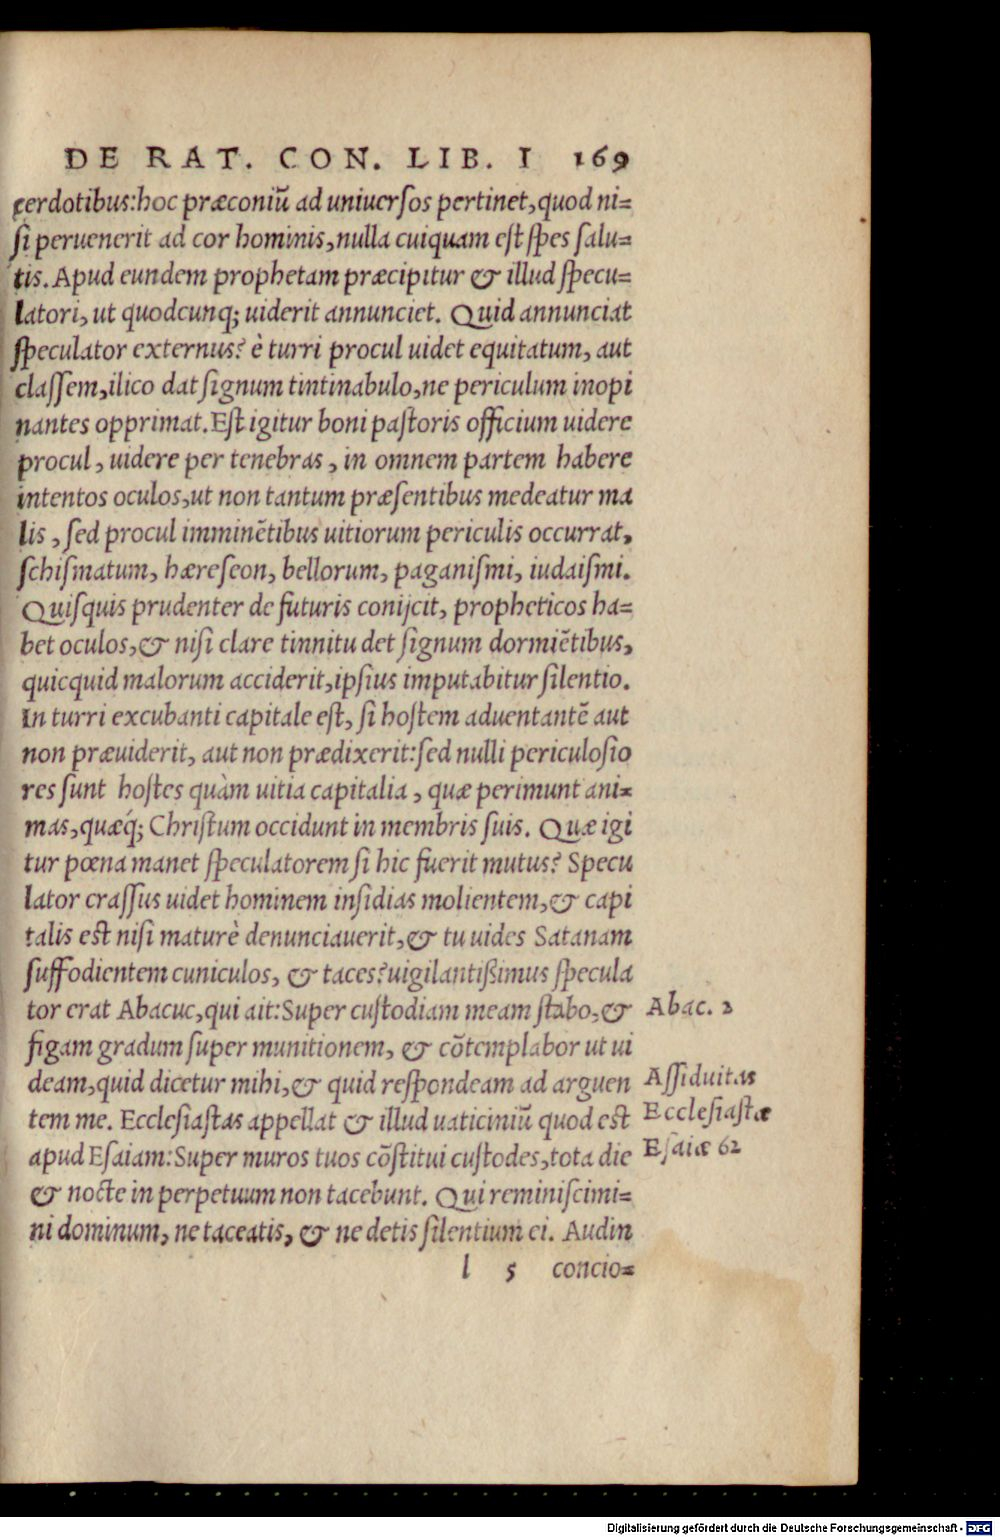 DE RAT. CON. LIB. I 169
cerdotibus:hoc præconiũ ad uniuersos pertinet,quod ni=
si peruenerit ad cor hominis,nulla cuiquam est spes salu=
tis. Apud eundem prophetam præcipitur & illud specu=
latori, ut quodcunq; uiderit annunciet. Quid annunciat
speculator externus? è turri procul uidet equitatum, aut
classem,ilico dat signum tintinabulo,ne periculum inopi
nantes opprimat. Est igitur boni pastoris officium uidere
procul, uidere per tenebras, in omnem partem habere
intentos oculos,ut non tantum præsentibus medeatur ma
lis, sed procul imminẽtibus uitiorum periculis occurrat,
schismatum, hæreseon, bellorum, paganismi, iudaismi.
Quisquis prudenter de futuris conijcit, propheticos ha=
bet oculos,& nisi clare tinnitu det signum dormiẽtibus,
quicquid malorum acciderit,ipsius imputabitur silentio.
In turri excubanti capitale est, si hostem aduentantẽ aut
non præuiderit, aut non prædixerit:sed nulli periculosio
res sunt hostes quàm uitia capitalia, quæ perimunt ani=
mas,quæq́; Christum occidunt in membris suis. Quæ igi
tur pœna manet speculatorem si hic fuerit mutus? Specu
lator crassus uidet hominem insidias molientem,& capi
talis est nisi maturè denunciauerit,& tu uides Satanam
suffodientem cuniculos, & taces? uigilantißimus specula
tor erat Abacuc,qui ait:Super custodiam meam stabo,& Abac. 2
figam gradum super munitionem, & cõtemplabor ut ui
deam,quid dicetur mihi,& quid respondeam ad arguen Assiduitas
tem me. Ecclesiastas appellat & illud uaticiniũ quod est Ecclesiastæ
apud Esaiam:Super muros tuos cõstitui custodes,tota die Esaiæ 62
& nocte in perpetuum non tacebunt. Qui reminiscimi=
ni dominum, ne taceatis, & ne detis silentium ei. Audin
l 5 concio=
Digitalisierung gefördert durch die Deutsche Forschungsgemeinschaft - DFG